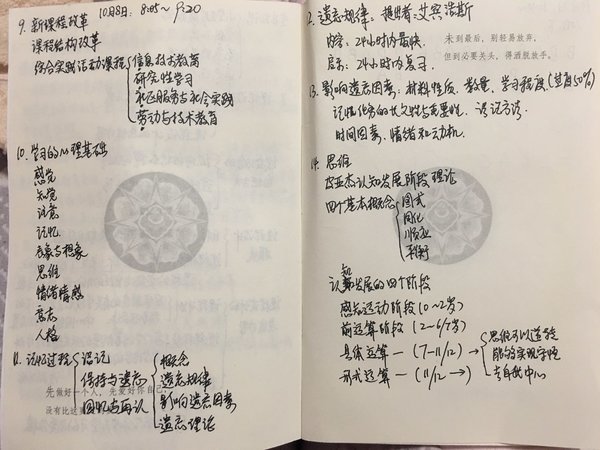 10月8日：8:45~9:20
9. 新课程改革
课程结构改革
综合实践活动课程
信息技术教育
研究性学习
社区服务与社会实践
劳动与技术教育
10. 学习的心理基础
感觉
知觉
注意
记忆
表象与想象
思维
情绪情感
意志
人格
11. 记忆过程
识记
保持与遗忘
回忆与再认
概念
遗忘规律
影响遗忘因素
遗忘理论
先做好一个人，先爱好你自己，
没有比这
12. 遗忘规律：提出者：艾宾浩斯
内容：24小时内最快.
启示：24小时内复习.
未到最后，别轻易放弃，
但到必要关头，得洒脱放手。
13. 影响遗忘因素：材料性质、数量、学习程度(过度50%)
记忆任务的长久性与重要性、识记方法、
时间因素、情绪和动机.
14. 思维
皮亚杰认知发展阶段理论
四个基本概念
图式
同化
顺应
平衡
认知发展的四个阶段
感知运动阶段(0~2岁)
前运算阶段(2-6/7岁)
具体运算—(7-11/12)→
形式运算—(11/12→)
思维可以逆转
能够实现守恒
去自我中心